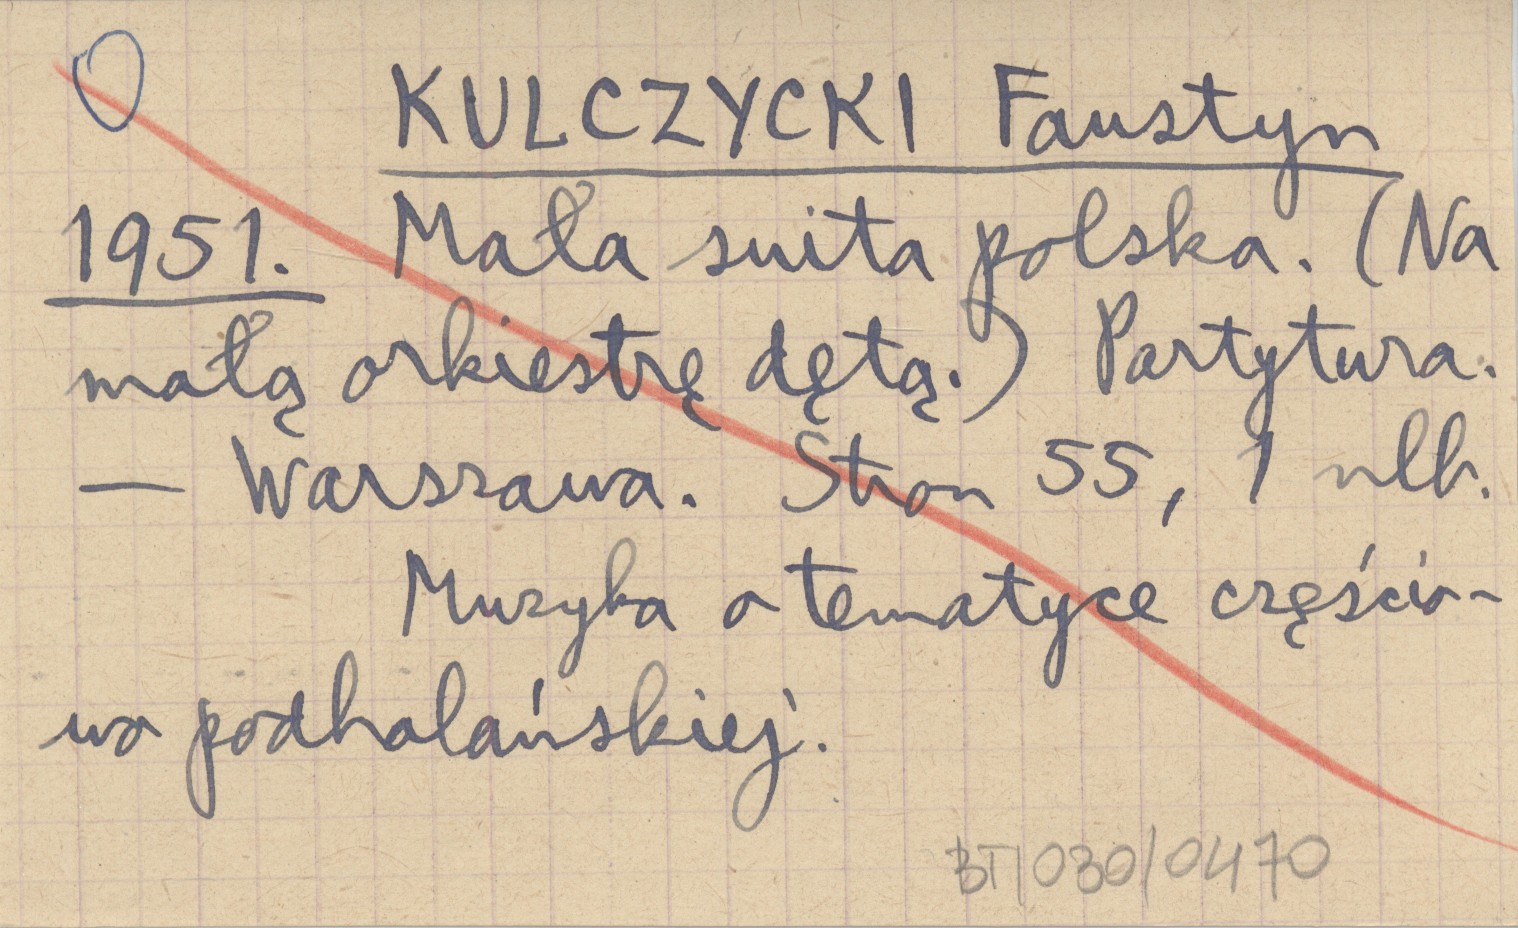 KULCZYCKI Faustyn
1951. Mała suita polska. (Na
małą orkiestrę dętą.) Partytura.
— Warszawa. Stron 55, 1 nlb.
Muzyka o tematyce częścio-
wo podhalańskiej.
BT/030/0470